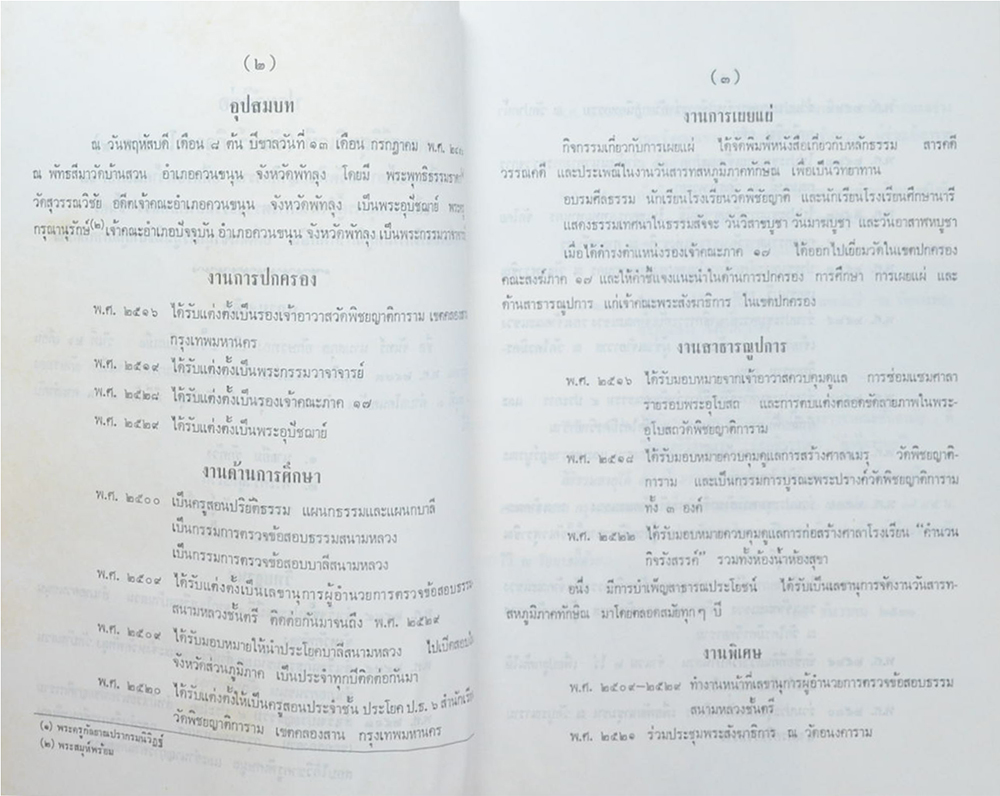 (๒)
อุปสมบท
ณ วันพฤหัสบดี เดือน ๘ ต้น ปีขาลวันที่ ๑๓ เดือน กรกฎาคม พ.ศ.
ณ พัทธสีมาวัดบ้านสวน อำเภอควนขนุน จังหวัดพัทลุง โดยมี
วัดสุวรรณวิชัย อดีตเจ้าคณะอำเภอควนขนุน จังหวัดพัทลุง เป็นพระอุปัชฌาย์
กรุณานุรักษ์(๒) เจ้าคณะอำเภอปัจจุบัน อำเภอควนขนุน จังหวัดพัทลุง
งานการปกครอง
พ.ศ. ๒๕๑๖ ได้รับแต่งตั้งเป็นรองเจ้าอาวาสวัดพิชยญาติการาม เขตคลองสาน
กรุงเทพมหานคร
พ.ศ. ๒๕๑๙ ได้รับแต่งตั้งเป็นพระกรรมวาจาจารย์
พ.ศ. ๒๕๒๘ ได้รับแต่งตั้งเป็นรองเจ้าคณะภาค ๑๗
พ.ศ. ๒๕๒๙ ได้รับแต่งตั้งเป็นพระอุปัชฌาย์
งานด้านการศึกษา
พ.ศ. ๒๕๐๐ เป็นครูสอนปริยัติธรรม แผนกธรรมและแผนกบาลี
เป็นกรรมการตรวจข้อสอบธรรมสนามหลวง
เป็นกรรมการตรวจข้อสอบบาลีสนามหลวง
พ.ศ. ๒๕๐๙ ได้รับแต่งตั้งเป็นเลขานุการผู้อำนวยการตรวจข้อสอบธรรม
สนามหลวงชั้นตรี ติดต่อกันมาจนถึง พ.ศ. ๒๕๒๙
พ.ศ. ๒๕๐๙ ได้รับมอบหมายให้นำประโยคบาลีสนามหลวง
จังหวัดส่วนภูมิภาค เป็นประจำทุกปีติดต่อกันมา
พ.ศ. ๒๕๒๐ ได้รับแต่งตั้งให้เป็นครูสอนประจำชั้น ประโยค ป.ธ. ๖ สำนักเรียน
วัดพิชยญาติการาม เขตคลองสาน กรุงเทพมหานคร
(๑) พระครูกัลยาณปรากรมนิวิฏฐ์
(๒) พระสมุห์พร้อม
(๓)
งานการเผยแผ่
กิจกรรมเกี่ยวกับการเผยแผ่ ได้จัดพิมพ์หนังสือเกี่ยวกับหลักธรรม สารคดี
วรรณคดี และประเพณีในงานวันสารทสหภูมิภาคทักษิณ เพื่อเป็นวิทยาทาน
อบรมศีลธรรม นักเรียนโรงเรียนวัดพิชยญาติ และนักเรียนโรงเรียนศึกษานารี
แสดงธรรมเทศนาในธรรมสัจจะ วันวิสาขบูชา วันมาฆบูชา และวันอาสาฬหบูชา
เมื่อได้ดำรงตำแหน่งรองเจ้าคณะภาค ๑๗ ได้ออกไปเยี่ยมวัดในเขตปกครอง
คณะสงฆ์ภาค ๑๗ และให้คำชี้แจงแนะนำในด้านการปกครอง การศึกษา การเผยแผ่ และ
ด้านสาธารณูปการ แก่เจ้าคณะพระสังฆาธิการ ในเขตปกครอง
งานสาธารณูปการ
พ.ศ. ๒๕๑๖ ได้รับมอบหมายจากเจ้าอาวาสควบคุมดูแล การซ่อมแซมศาลา
รายรอบพระอุโบสถ และการตบแต่งตลอดขัดลายภาพในพระ-
อุโบสถวัดพิชยญาติการาม
พ.ศ. ๒๕๑๘ ได้รับมอบหมายควบคุมดูแลการสร้างศาลาเมรุ วัดพิชยญาติ-
การาม และเป็นกรรมการบูรณะพระปรางค์วัดพิชยญาติการาม
ทั้ง ๓ องค์
พ.ศ. ๒๕๒๒ ได้รับมอบหมายควบคุมดูแลการก่อสร้างศาลาโรงเรียน “คำนวน
กิจรังสรรค์” รวมทั้งห้องน้ำห้องสุขา
อนึ่ง มีการบำเพ็ญสาธารณประโยชน์ ได้รับเป็นเลขานุการจัดงานวันสารท-
สหภูมิภาคทักษิณ มาโดยตลอดสมัยทุก ๆ ปี
งานพิเศษ
พ.ศ. ๒๕๐๙-๒๕๒๙ ทำงานหน้าที่เลขานุการผู้อำนวยการตรวจข้อสอบธรรม
สนามหลวงชั้นตรี
พ.ศ. ๒๕๒๑ ร่วมประชุมพระสังฆาธิการ ณ วัดอนงคาราม